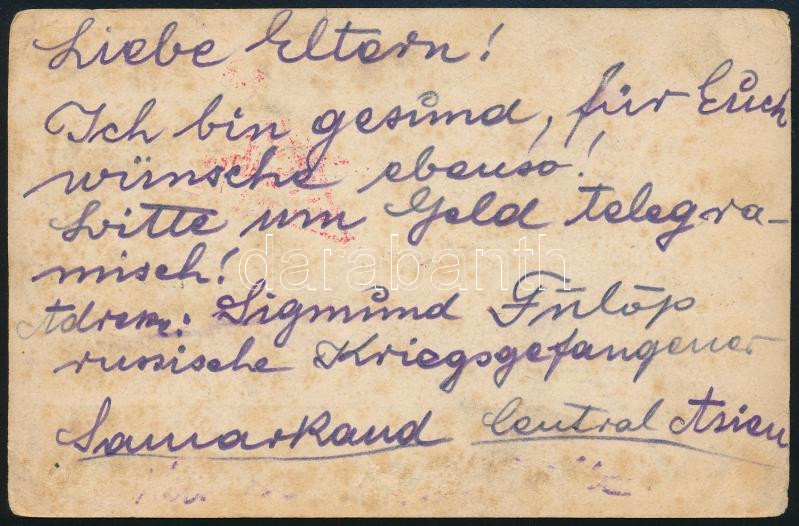 Liebe Eltern!
Ich bin gesund, für Euch
wünsche ebenso!
bitte um Geld telegra-
misch!
Adress: Sigmund Fülöp
russische Kriegsgefangener
Samarkand Central Asien
darabanth